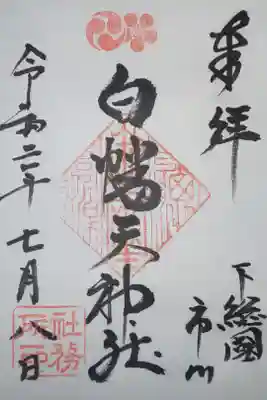 奉拝
下総國
市川
白幡天神社
令和二年七月八日
社務
所印